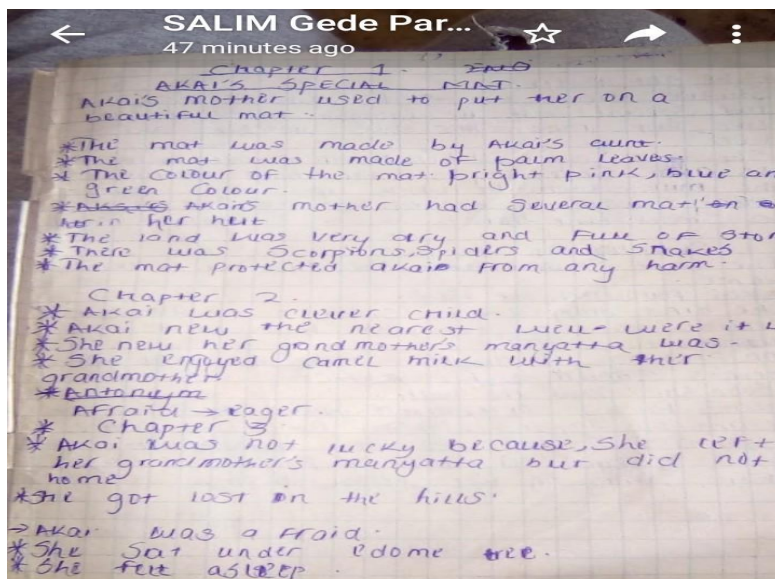 SALIM Gede Par...
47 minutes ago
Chapter 1.
AKAI'S SPECIAL MAT.
AKai's mother used to put her on a
beautiful mat.
*The mat was made by AKai's aunt.
*The mat was made of palm leaves.
* The colour of the mat bright pink, blue an
green colour.
* Akai's mother had several mat in
her hut
*The land was very dry and full of stor
* There was scorpions, spiders and snakes
*The mat protected akai from any harm.
Chapter 2.
* AKai was clever child.
* AKai new the nearest well were it w
*She new her gandmother's manyatta was-
* She engoyed camel milk with her
grandmother
*Antonym
Afraid → eager.
* Chapter 3
* AKai was not lucky because, she left
her grandmother's manyatta but did not
home
*She got lost in the hills.
→ AKai was a fraid.
*She sat under edome tree.
* She felt asleep.